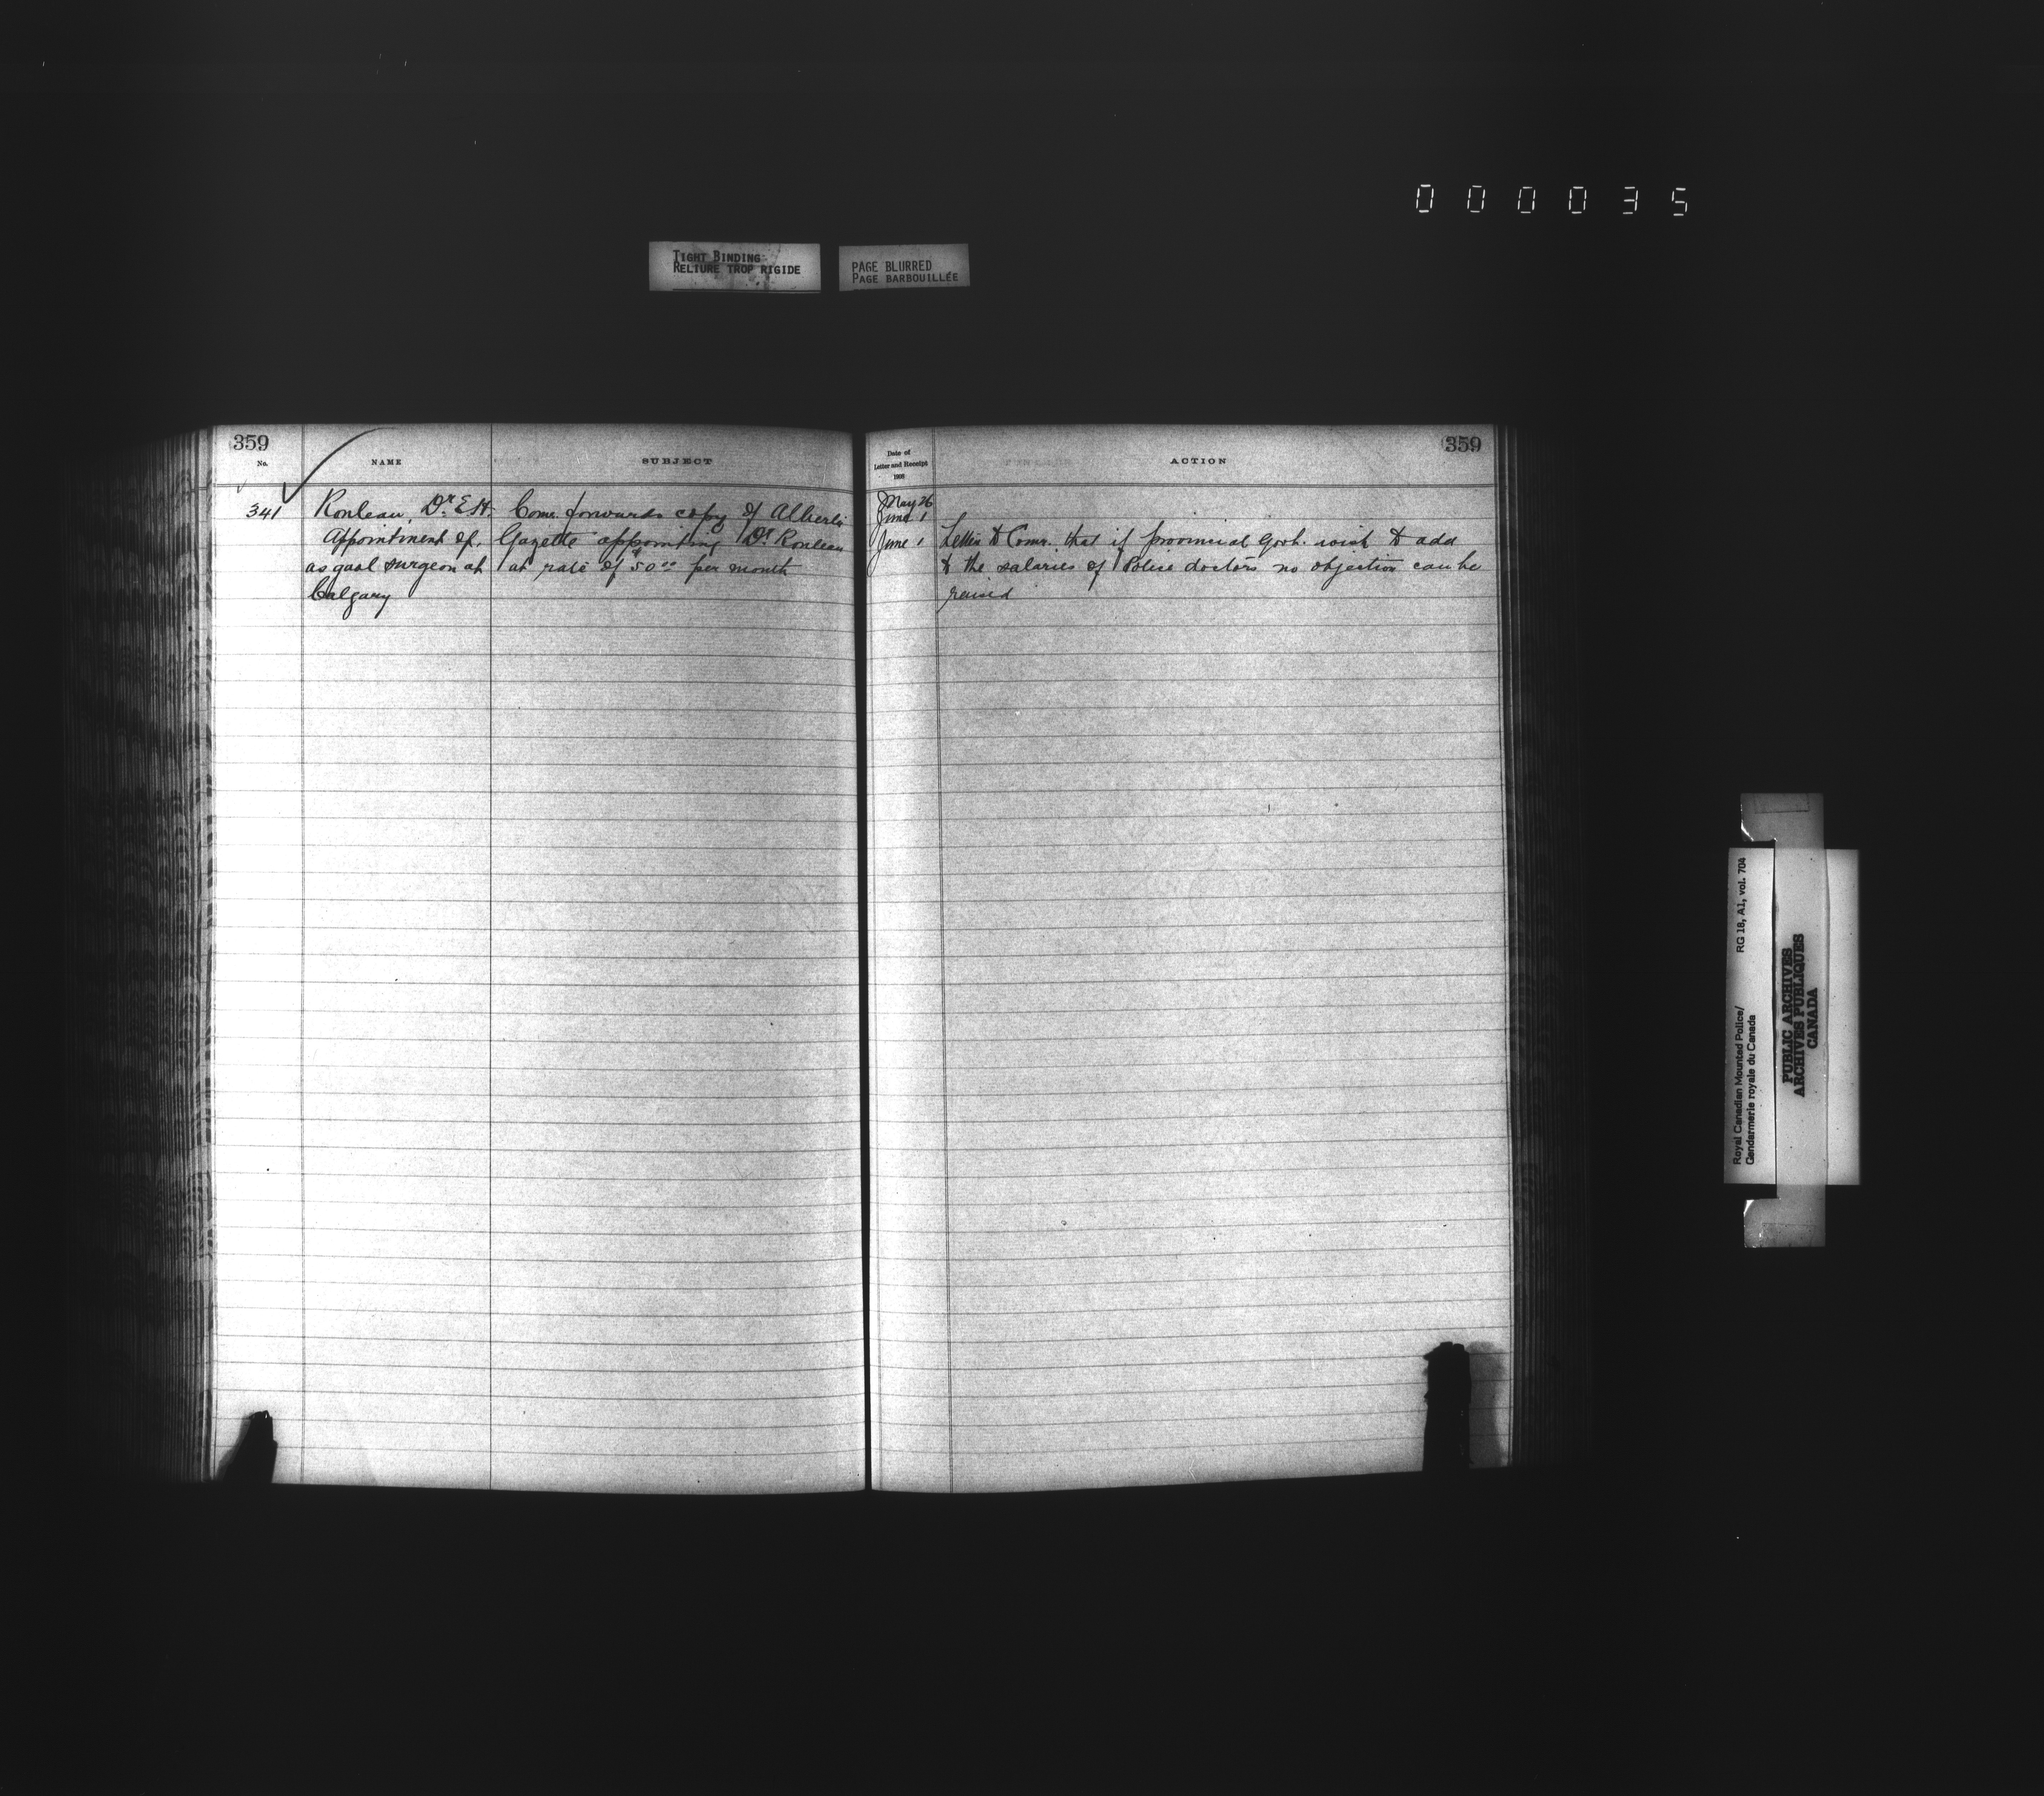 000035
TIGHT BINDING
RELIURE TROP RIGIDE
PAGE BLURRED
PAGE BARBOUILLÉE
359
No.
NAME
SUBJECT
341
Rouleau, Dr. E.H.
Appointment of,
as gaol surgeon at
Calgary
Comr. forwards copy of Alberta
Gazette appointing Dr. Rouleau
at rate of $50.00 per month
359
Date of
Letter and Receipt
ACTION
May 26
June 1
June 1
Letter to Comr. that if provincial Govt. wish to add
to the salaries of Police doctors no objection can be
raised
Royal Canadian Mounted Police/
Gendarmerie royale du Canada
RG 18, A1, vol. 704
PUBLIC ARCHIVES
ARCHIVES PUBLIQUES
CANADA